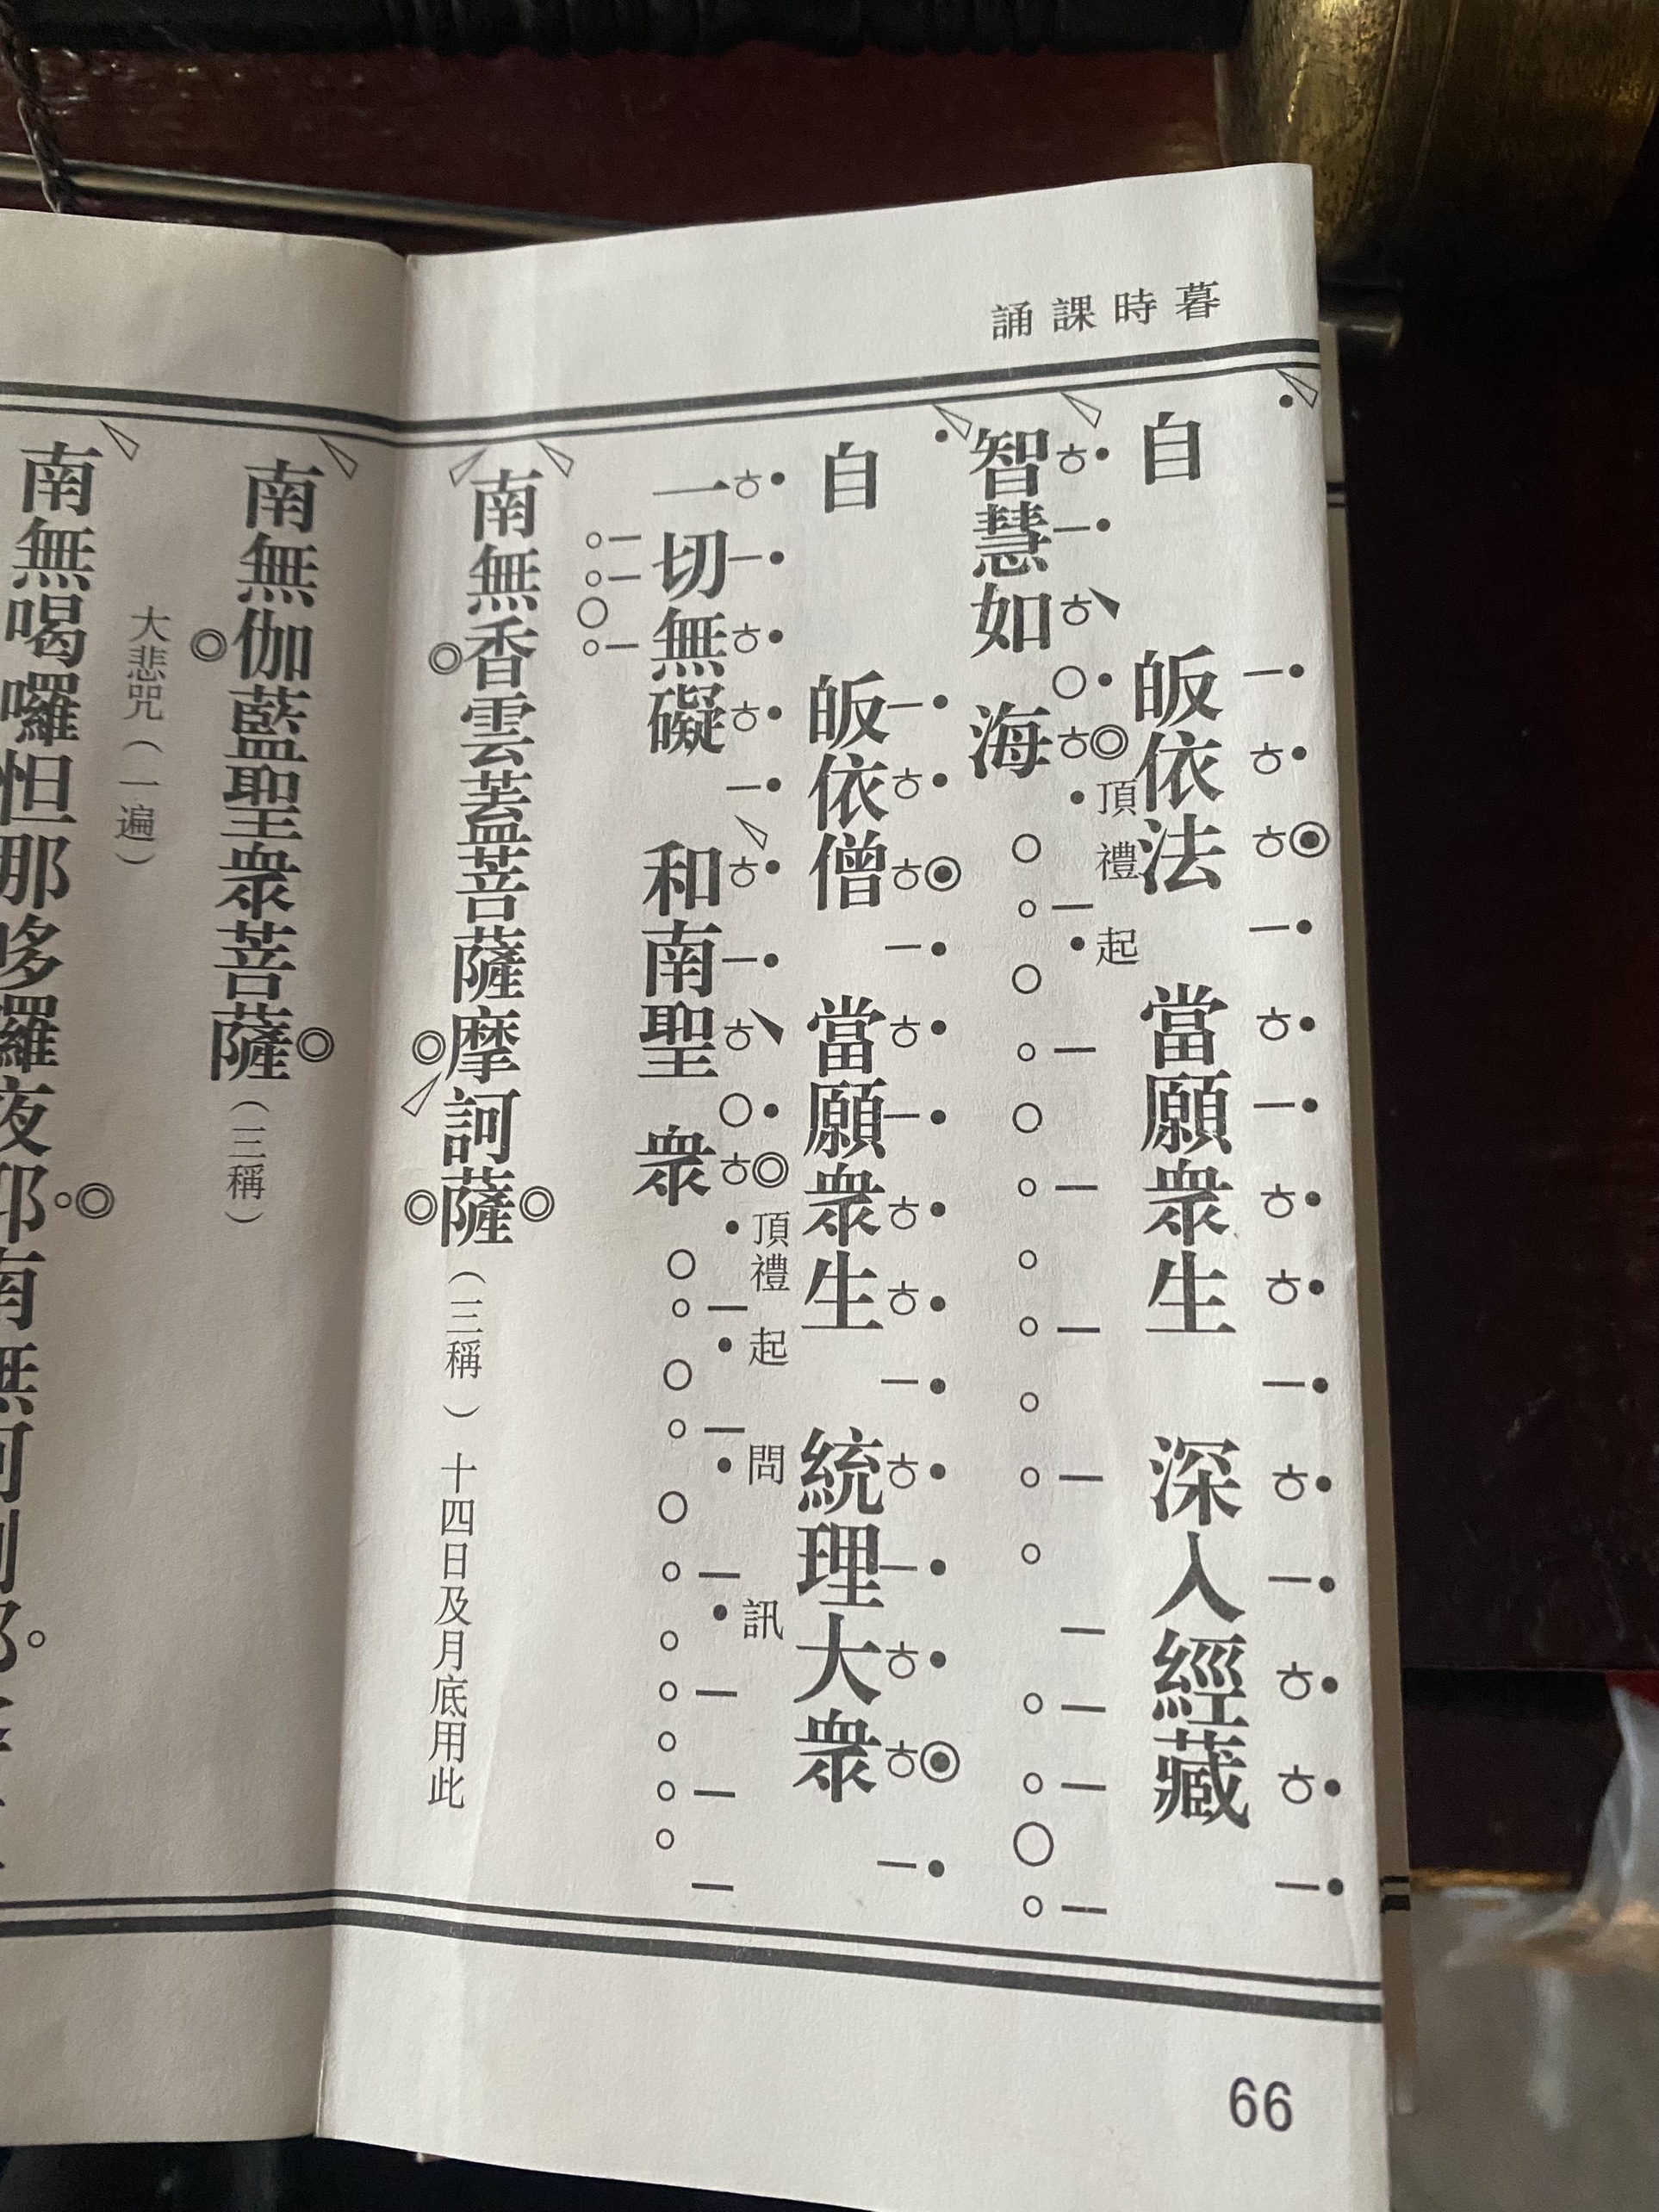 暮時課誦
自皈依法 當願衆生 深入經藏
智慧如海
頂禮 起
自皈依僧 當願衆生 統理大衆
一切無礙 和南聖衆
頂禮 起 問訊
南無香雲蓋菩薩摩訶薩（三稱）十四日及月底用此
南無伽藍聖衆菩薩（三稱）
大悲咒（一遍）
南無喝囉怛那哆囉夜耶南無
66